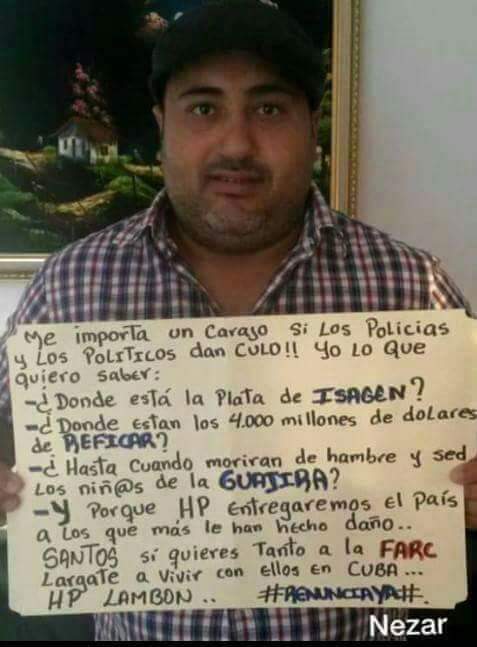 Me importa un Carajo Si Los Policias
y Los PoLITICos dan CULO!! Yo Lo Que
quiero saber:
-¿Donde está la Plata de ISAGEN?
-¿Donde Estan los 4.000 millones de dolares
de REFICAR?
-¿ Hasta Cuando moriran de hambre y sed
Los niñ@s de la GUAJIRA?
-Y Porque HP Entregaremos El País
a Los que más le han hecho daño..
SANTOS sí quieres Tanto a la FARC
Largate a Vivir con ellos En CUBA...
HP LAMBON.. #RENUNCIAYA#.
Nezar